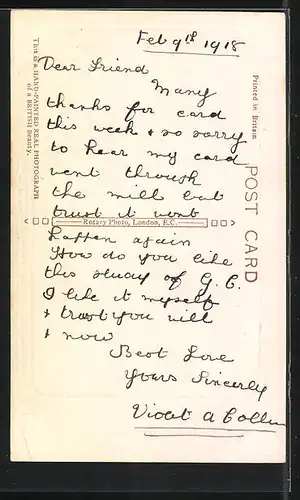 Feb 9th 1918
Dear Friend
Many
thanks for card
this week & so sorry
to hear my card
went through
the mill but
trust it wont
happen again
How do you like
this study of G. C.
I like it myself
& trust you will
& now
Best Love
Yours Sincerely
Violet A
This is a HAND-PAINTED REAL PHOTOGRAPH
of a BRITISH Beauty.
Rotary Photo, London, E.C.
POST CARD
Printed in Britain